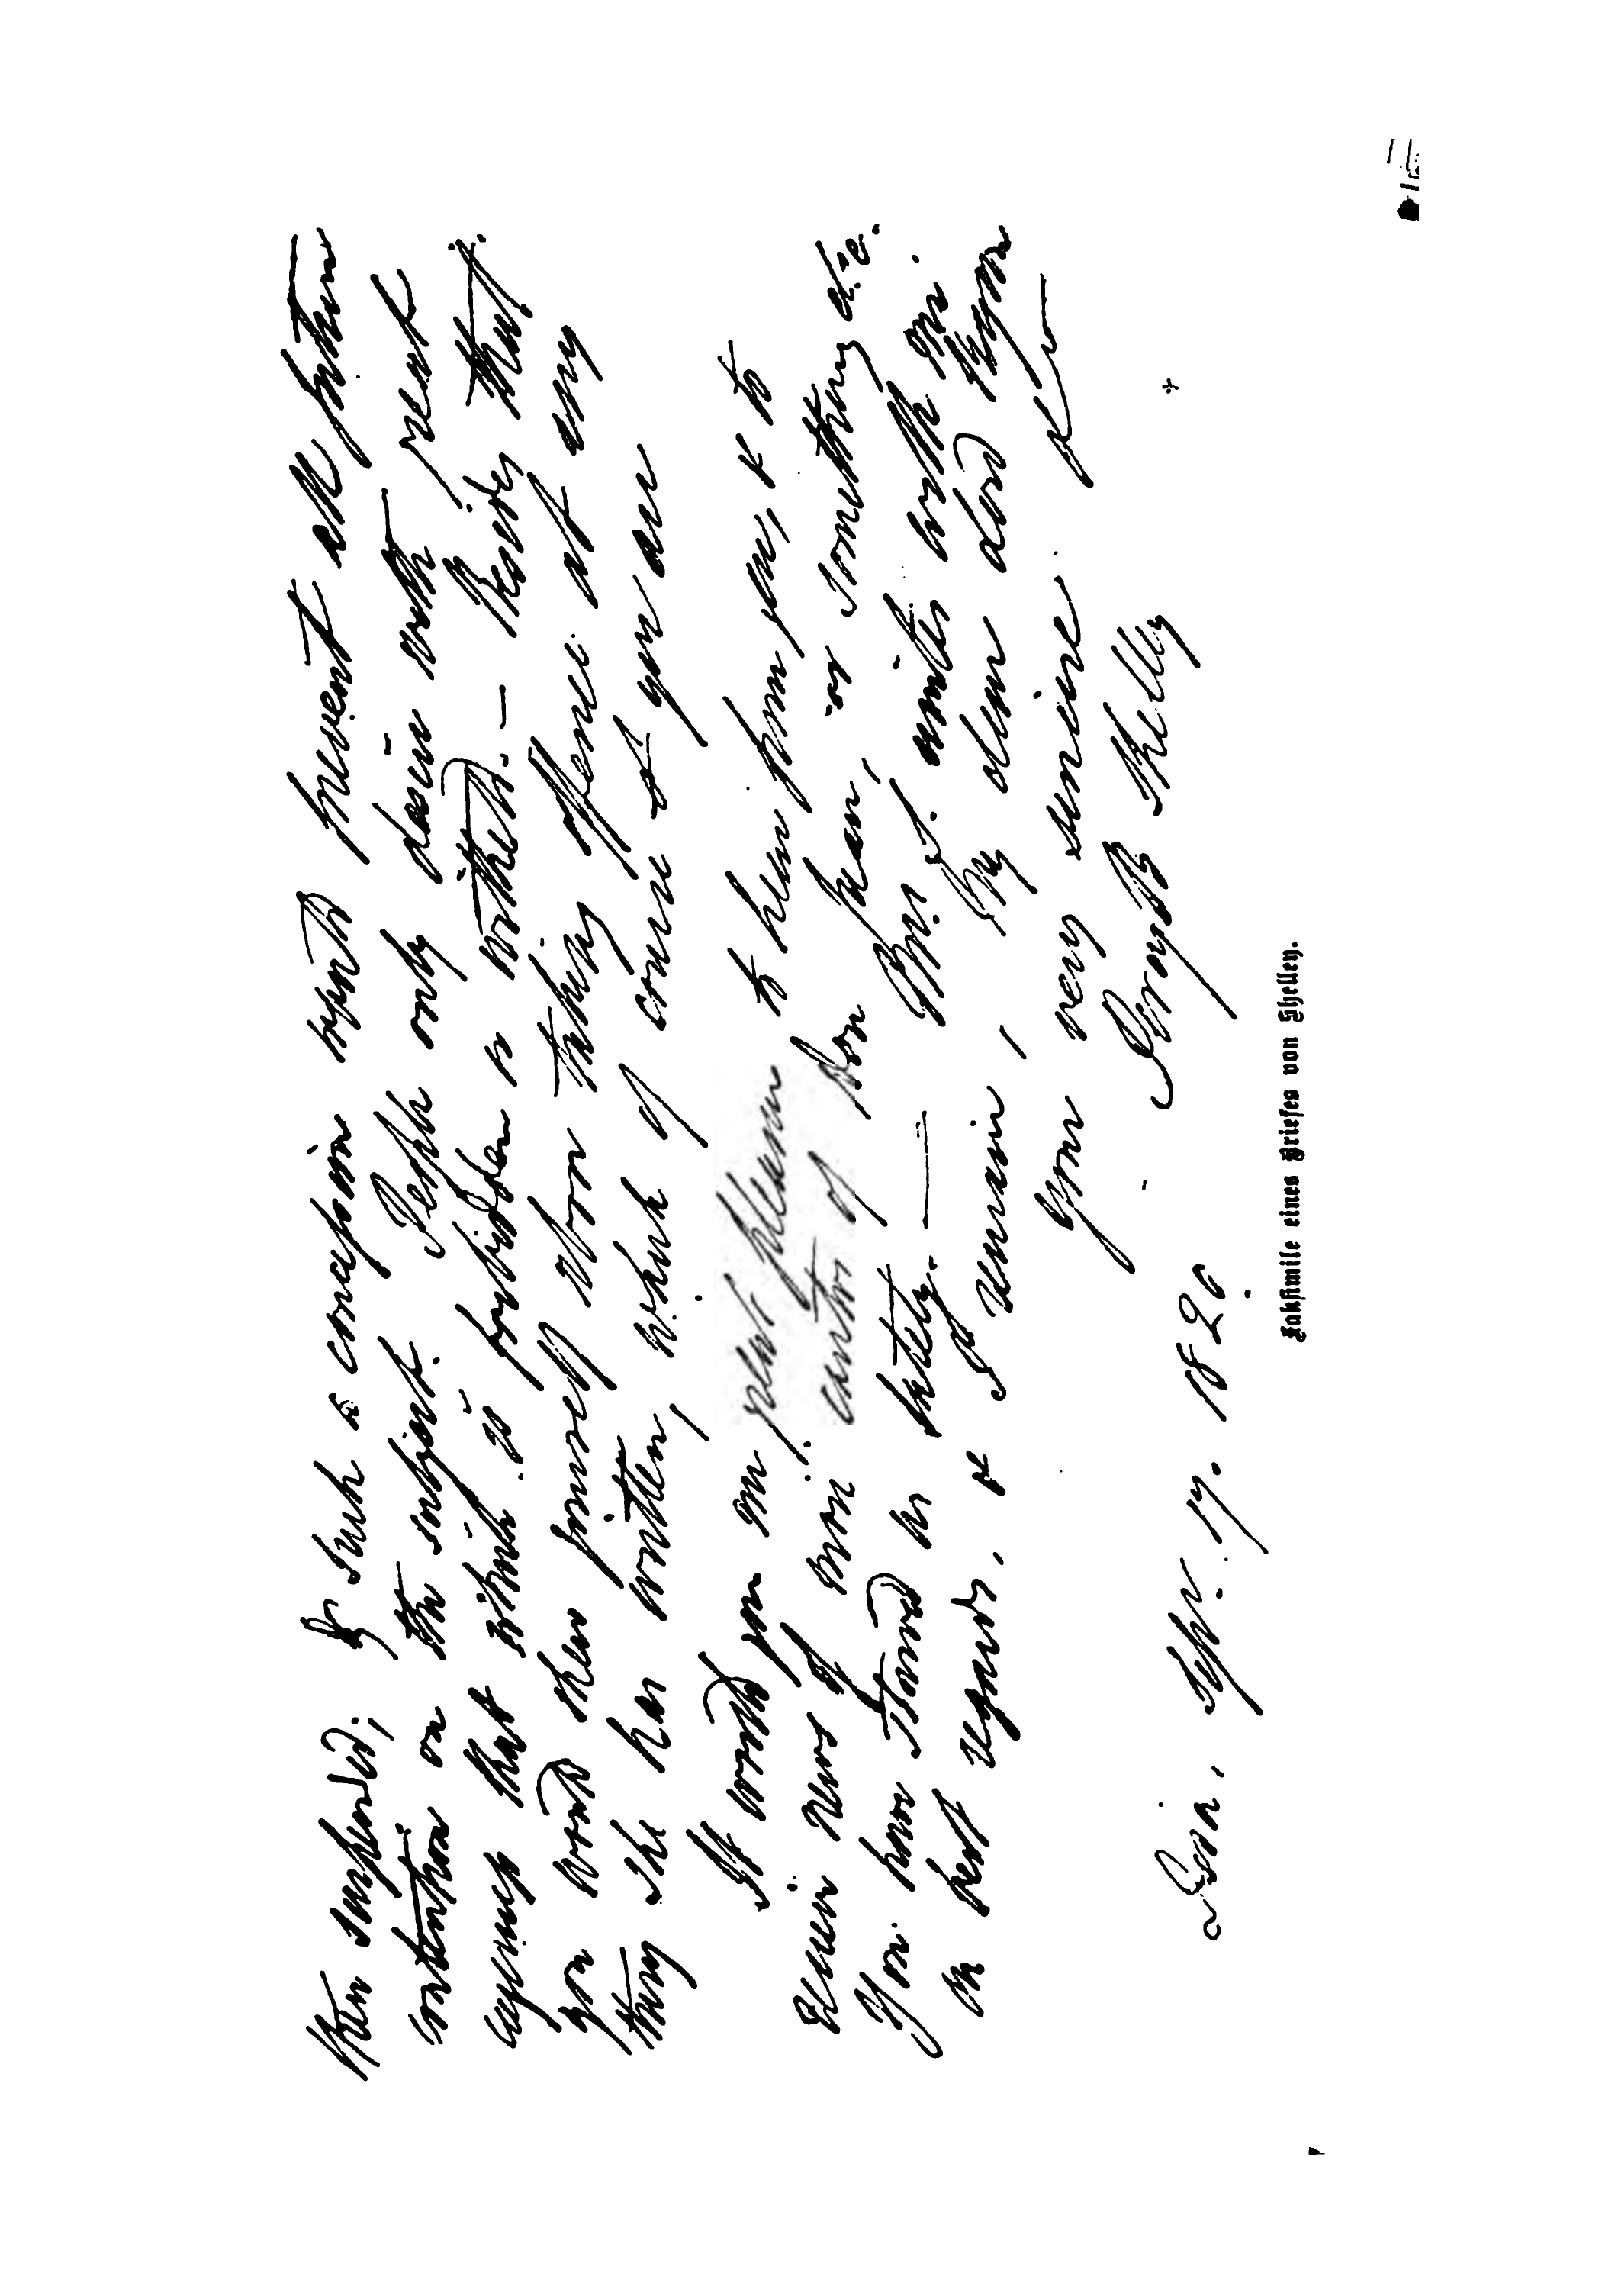 then suspended; & such a concession would prevent all future
contention on the subject. Pesth only dain with
express that which is forbidden is withheld. — Besides that
you would shew yourself above taking offence at any
thing she has written, which of course you are
It would give me great pleasure to hear from you, & to
receive news of more cantos of Don Juan, or something else.
You have starved us lately. — Mrs. S. unites with me
in best regards, & I remain, my dear Lord Byron
Your very sincere &c
PercyB Shelley
Pisa, Sept. 17. 1820
Faksimile eines Briefes von Shelley.